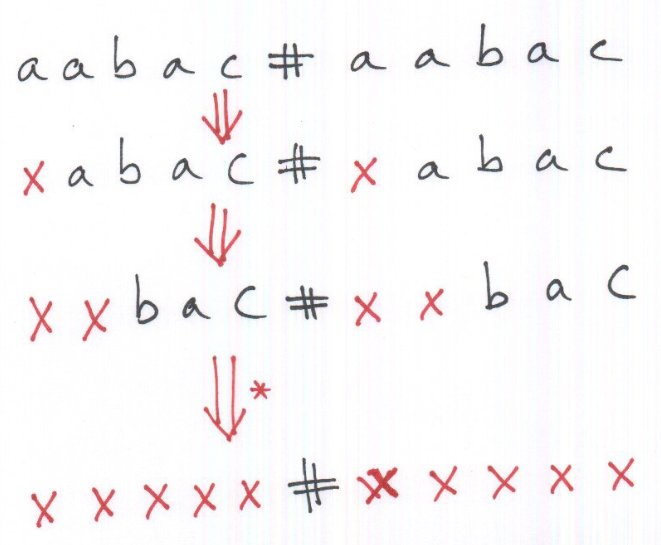 a a b a c # a a b a c
⇓
x a b a c # x a b a c
⇓
x x b a c # x x b a c
⇓*
x x x x x # x x x x x